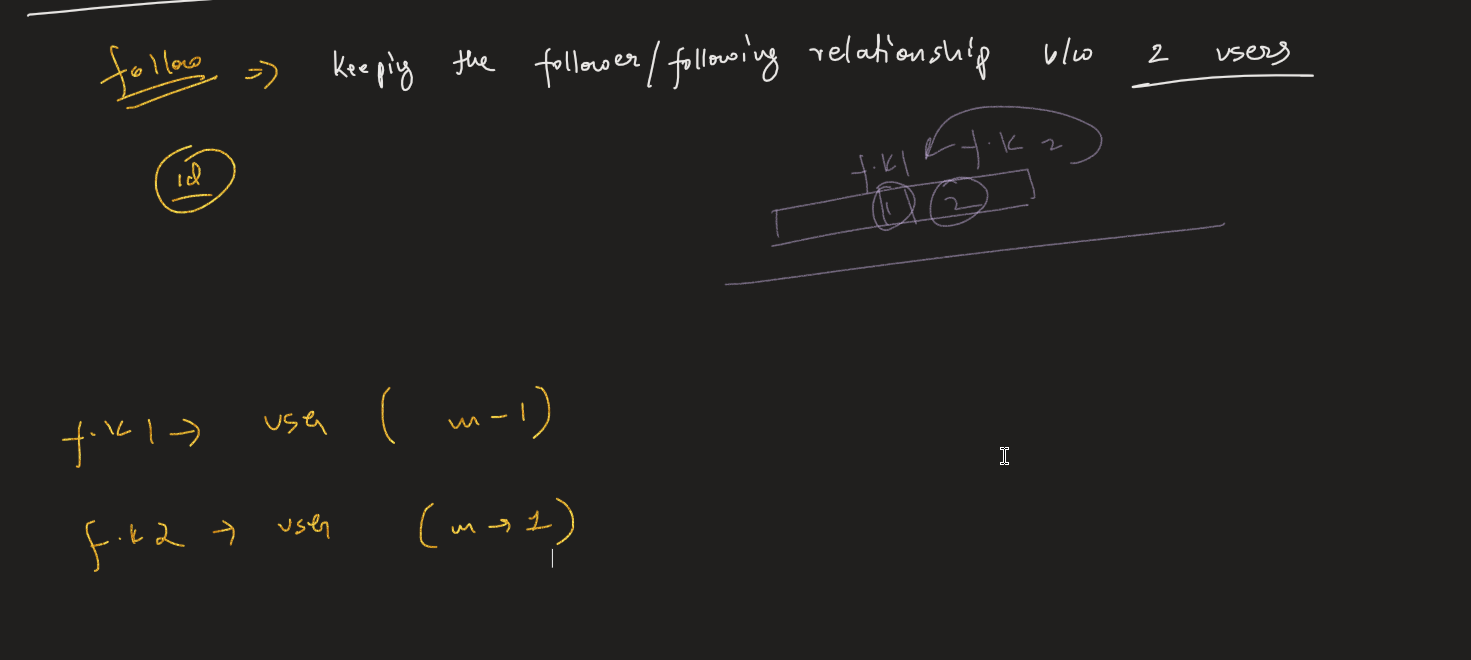 follow => keeping the follower/following relationship b/w 2 users
f.k1 f.k 2
id
1 2
f.k 1 → user ( m - 1 )
f.k 2 → user ( m → 1 )